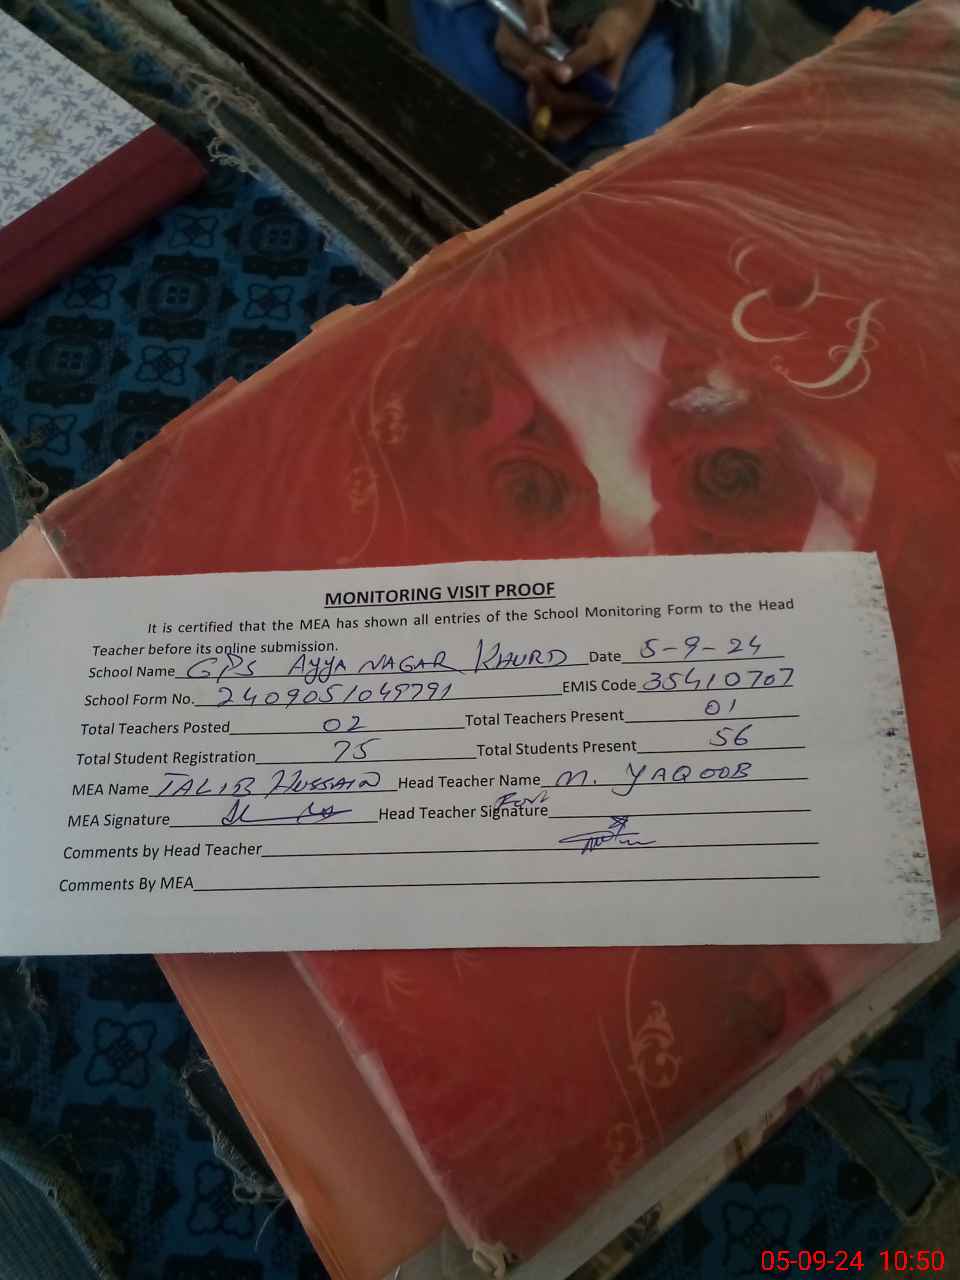 MONITORING VISIT PROOF
It is certified that the MEA has shown all entries of the School Monitoring Form to the Head
Teacher before its online submission.
School Name GPS AYYA NAGAR KHURD Date 5-9-24
School Form No. 2409051049791 EMIS Code 35410707
Total Teachers Posted 02 Total Teachers Present 01
Total Student Registration 75 Total Students Present 56
MEA Name TALIB HUSSAIN Head Teacher Name M. YAQOOB
MEA Signature Head Teacher Signature
Comments by Head Teacher
Comments By MEA
05-09-24 10:50